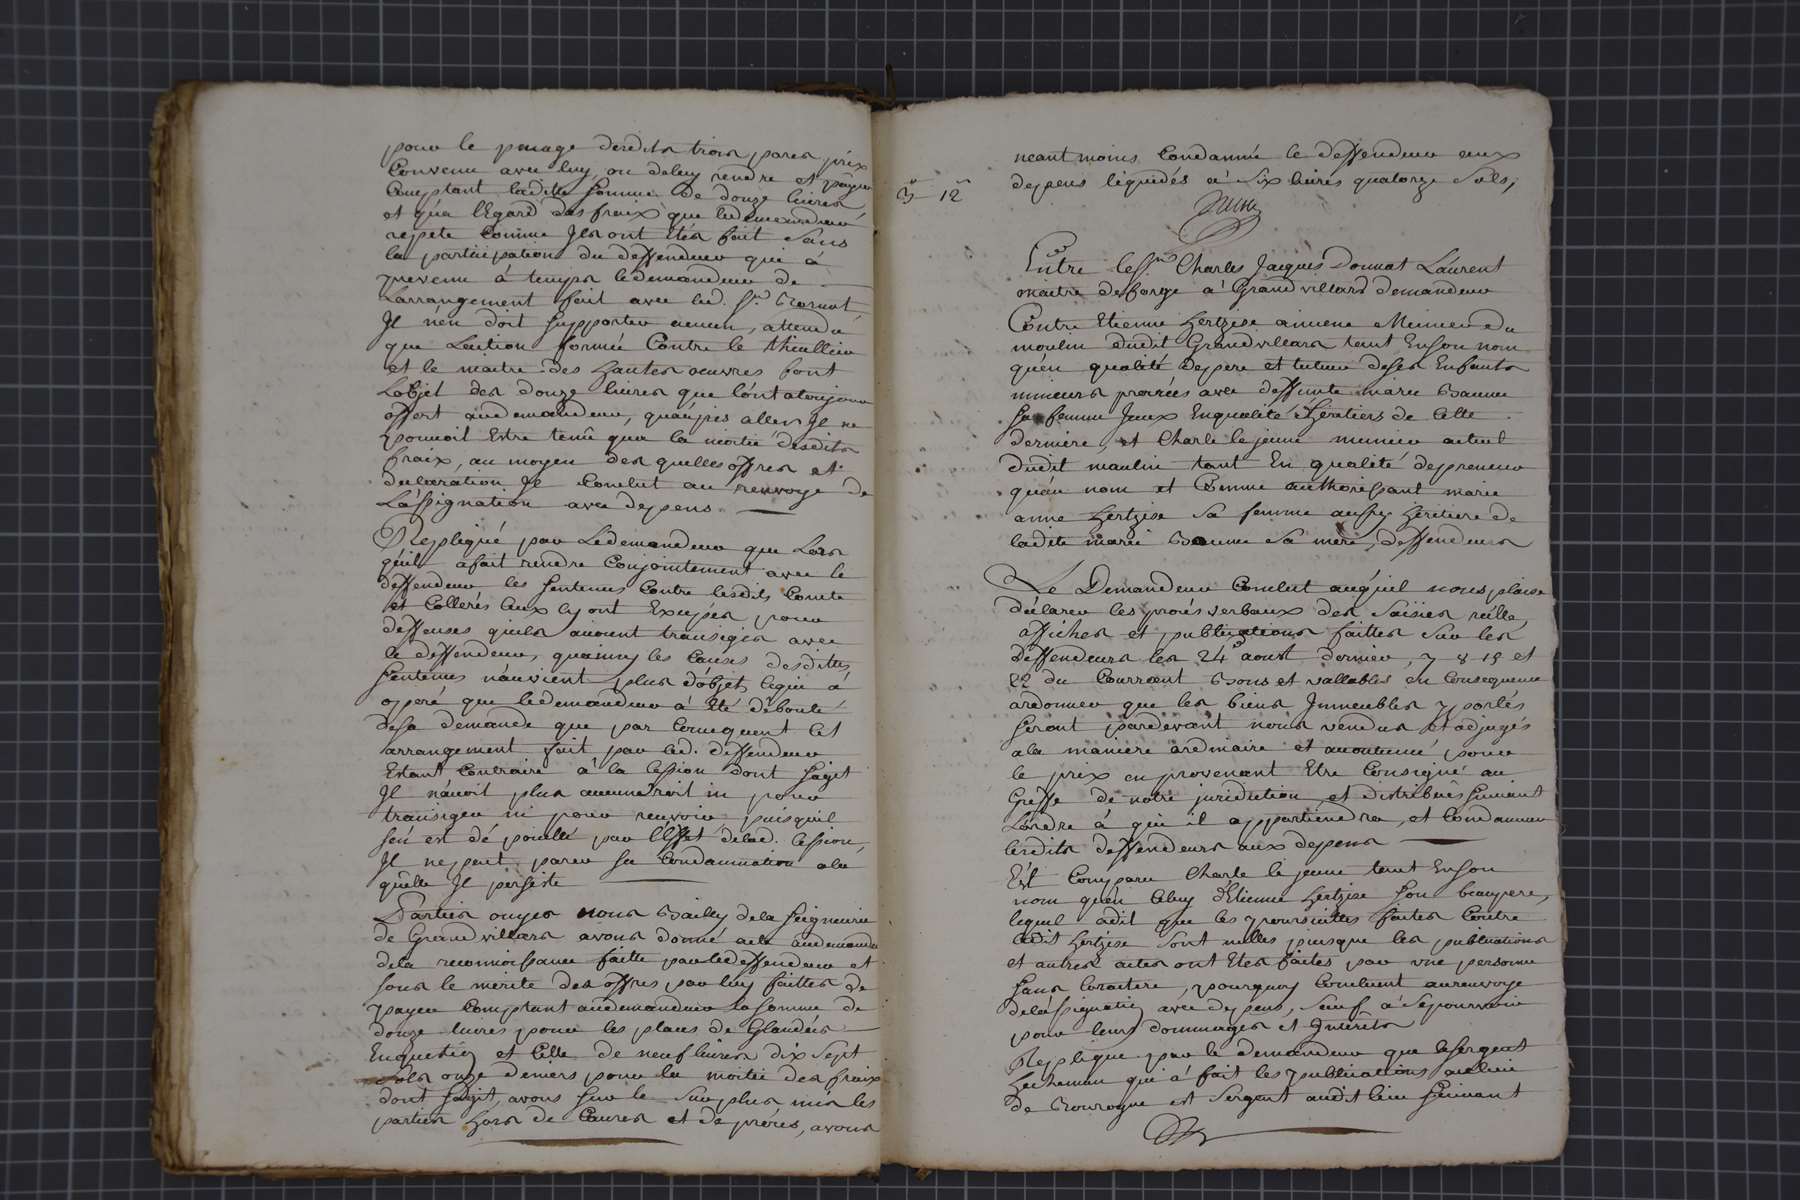 pour le pnage desdits trois porcs prix
Convenu avec luy, ou deluy rendre et payer
Comptant ladite somme de douze livres
et qua lEgard des fraix que ledemandeur
repete Comme Ils ont Etés fait sans
la participation du deffendeur qui á
prevenu á temps ledemandeur de
Larrangement fait avec led. Sr.
Il n'en doit supporter aucun, attendu
que Laction formée Contre le thieullier
et le maitre des hautes oeuvres font
Lobjet des douze livres que l'on a toujours
offert audemandeur, quaupis aller Il ne
pouvoit Estre tenû qua la moitié desdits
fraix, au moyen des quelles offres et
declaration Il Conclut au renvoye de
Lassignation avec depens
Repliqué par Ledemandeur que Lors
quil a fait rendre Conjointement avec le
deffendeur les sentences Contre lesdits Comte
et Collerés Ceux cy ont Excipés pour
deffenses quils avoient transigés avec
le deffendeur, quainsy les Causes desdittes
sentences n'avoient plus d'objet, cequi á
operé que ledemandeur á Eté débouté
desa demande que par Consequent Cet
arrangement fait par led. deffendeur
Estant Contraire á la Cession dont sagit
Il n'avoit plus aucun droit ni pour
transiger ni pour recevoir puisquil
sen est dépouillé par l'Effet delad. Cession,
Il ne peut parer sa Condamnation a la
quelle Il persiste
Parties ouyes nous Bailly dela seigneurie
de Grandvillars avons donné acte audemandeur
dela reconnoissance faitte par ledeffendeur et
sous le mérite des offres par luy faittes de
payer Comptant audemandeur la somme de
douze livres pour les places de Glandées
Enquestion et Celle de neuf livres dix sept
sols onze deniers pour la moitié des fraix
dont sagit, avons sur le surplus mis les
parties hors de Cours et de procés, avons
neantmoins Condamné le deffendeur aux
depens liquidés á six livres quatorze sols;
3 12
Entre le Sr. Charles Jacques Donnat Laurent
maitre deforge á Grandvillars demandeur
Contre Etienne hertzise ancien Meunier du
moulin dudit Grandvillars tant Enson nom
quén qualité depere et tuteur deses Enfants
mineurs procréés avec deffunte marie
sa femme Iceux Enqualité d'heritiers de Cette
derniere, et Charle lejeune meunier actuel
dudit moulin tant En qualité depreneur
quau nom et Comme authorissant marie
anne hertzise sa femme aussy heritiere de
ladite marie sa mere, deffendeurs
Le Demandeur Conclut aceq'uil nous plaise
déclarer les procés verbaux des saisies réélle,
affiches et publications faittes sur les
deffendeurs les 24e. aoust dernier, 7 8 15 et
22 du Courrant Bons et vallables en Consequence
ordonner que les biens Immeubles y portés
seront pardevant nous vendus et adjugés
ala maniere ordinaire et accoutumé pour
le prix en provenant Etre Consigné au
Greffe de notre jurisdiction et distribués suivant
Lordre á qui il appartiendra, et Condamner
lesdits deffendeurs aux depens
Est Comparu Charle le jeune tant Enson
nom quén Celuy d'Etienne hertzise son beaupere,
lequel adit que les poursuittes faites Contre
ledit hertzise sont nulles puisque les publications
et autres actes ont Etés faites par une personne
sans Caractere, pourquoy Concluent aurenvoye
delassignation avec depens, sauf á sepourvoir
pour leurs dommages et Interêts
Replique par le demandeur que le sergent
qui á fait les publications aulieu
de est sergent audit lieu suivant